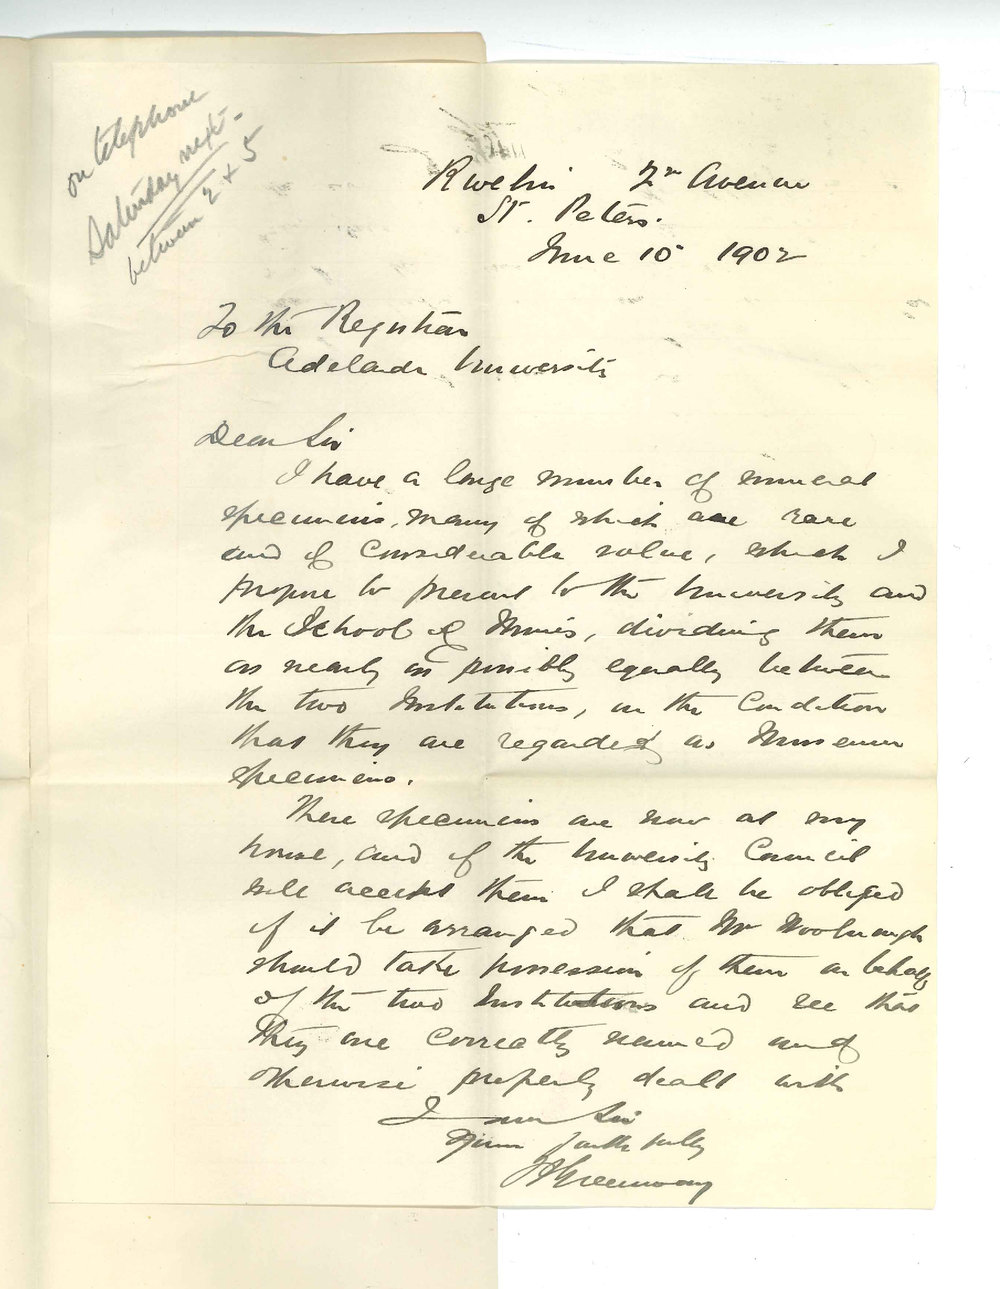 on telephone
Saturday next -
between 2 + 5
2nd Avenue
St. Peters.
June 10 1902
To the Registrar
Adelaide University
Dear Sir
I have a large number of mineral
specimens, many of which are rare
and of considerable value, which I
propose to present to the University and
the School of Mines, dividing them
as nearly as possibly equally between
the two Institutions, on the Condition
that they are regarded as Museum
specimens.
These specimens are now at my
house, and if the University Council
will accept them I shall be obliged
if it be arranged that Mr Woolnough
should take possession of them on behalf
of the two Institutions and see that
they are correctly named and
otherwise properly dealt with
I am Sir
Yours faithfully
Greenway